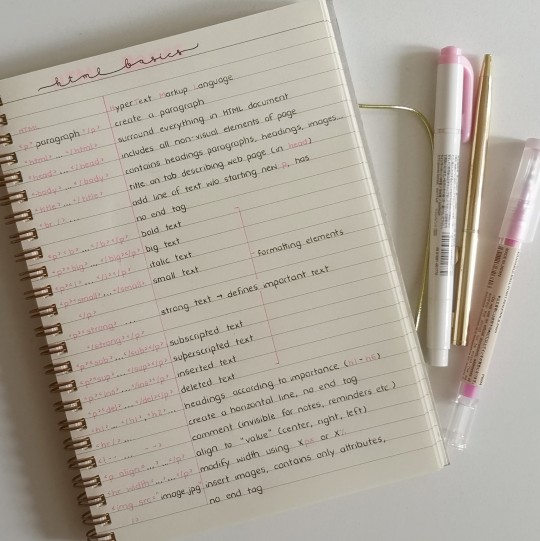 html basics
html HyperText Markup Language
"p" paragraph "/p" create a paragraph
"html" ... "/html" surround everything in HTML document
"head" ... "/head" includes all non-visual elements of page
"body" ... "/body" contains headings paragraphs, headings, images...
"title" ... "/title" title on tab describing web page (in head)
"br /" add line of text w/o starting new p, has
no end tag
"p" "b" ... "/b" "/p" bold text
"p" "big" ... "big" "/p" big text
"p" "i" ... "/i" "/p" italic text - formatting elements
"p" "small" ... "/small" small text
"/p"
"p" "strong" ... strong text → defines important text
"/strong" "/p"
"p" "sub" ... "/sub" "/p" subscripted text
"p" "sup" ... "/sup" "/p" superscripted text
"p" "ins" ... "/ins" "/p" inserted text
"p" "del" ... "/del" "/p" deleted text
"h1" ... "/h1", "h2" ... headings according to importance (h1-h6)
create a horizontal line, no end tag
"!-- ... --" comment (invisible for notes, reminders etc)
"p align" ... "/p" align to "value" (center, right, left)
"hr width" ... "/p" modify width using Xpx or X%
"img src" image.jpg insert images, contains only attributes,
no end tag